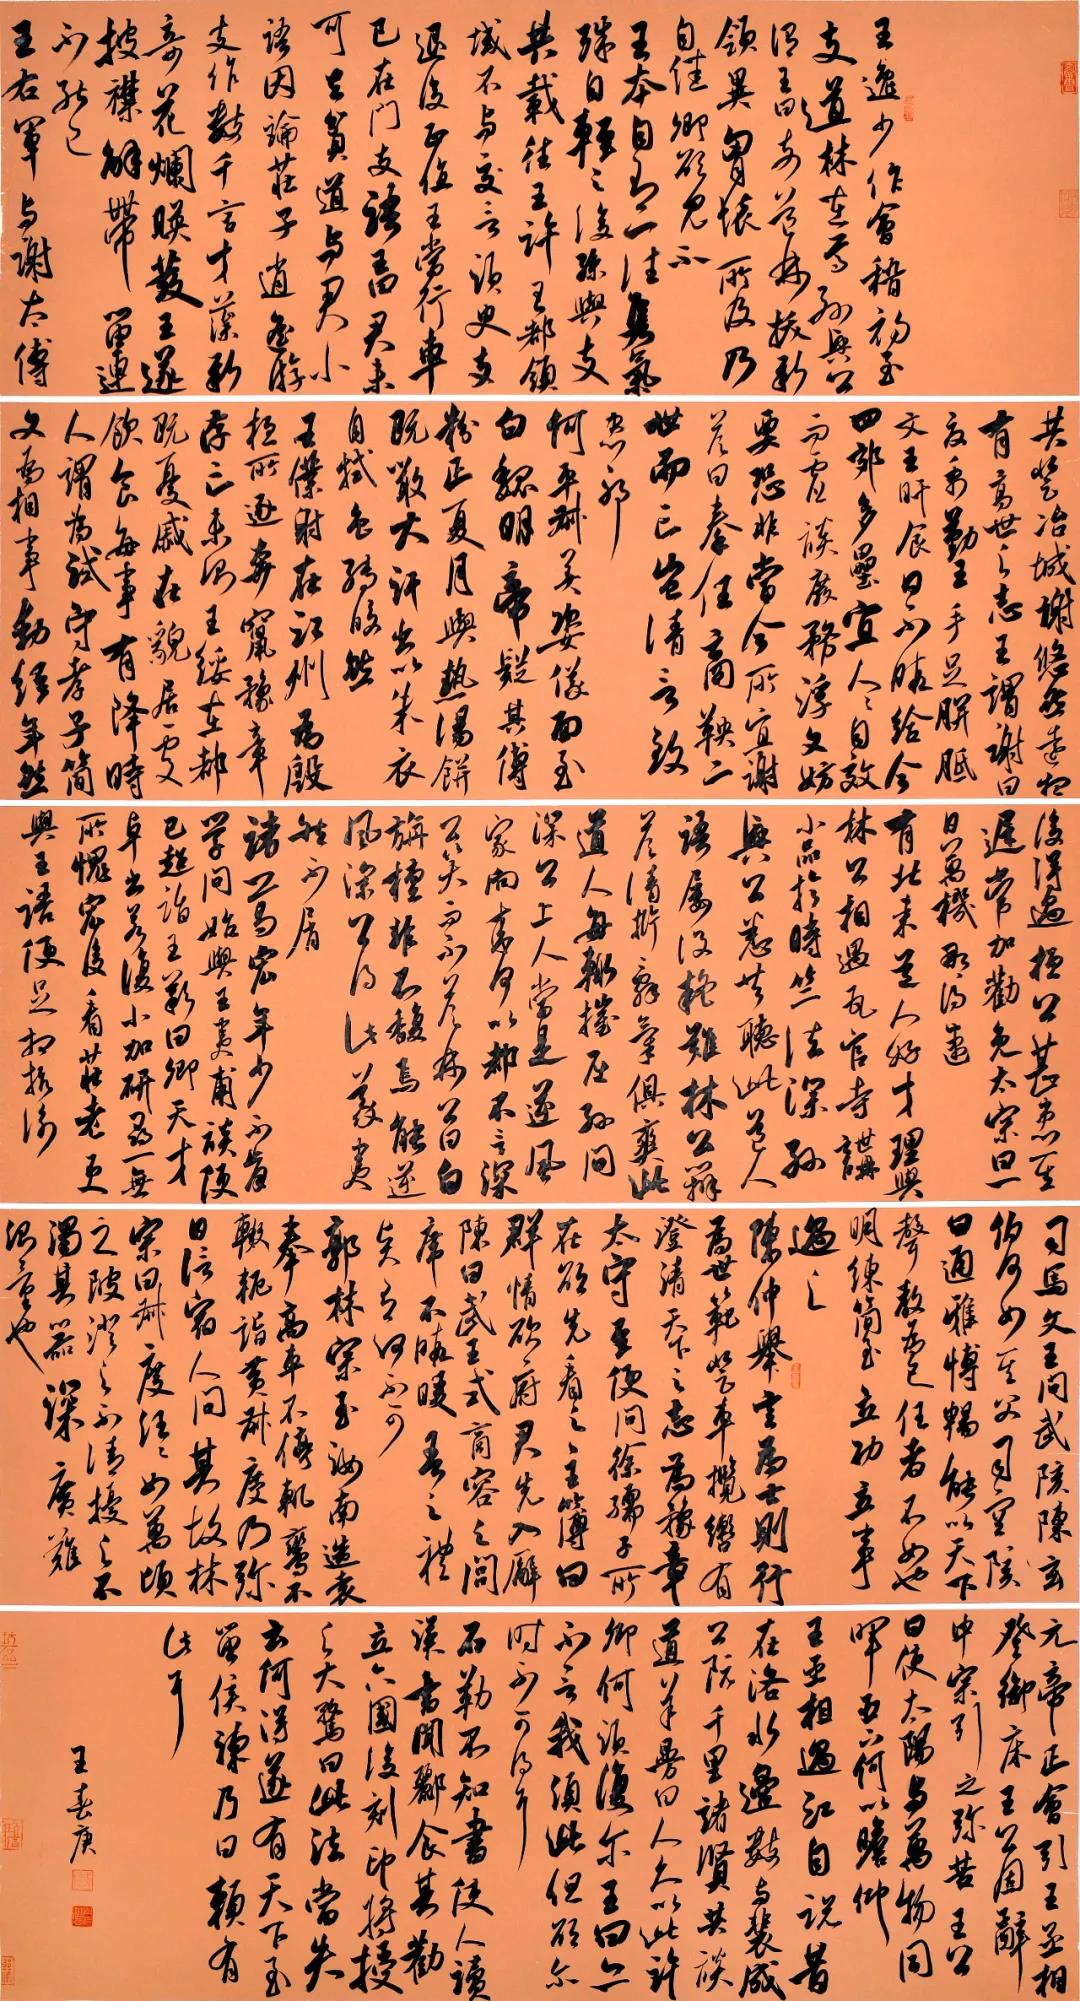 王逸少作會稽初至
支道林在焉孫興公
謂王曰支道林拔新
領異胸懷所及乃
自佳卿欲見不
王本自有一往雋氣
殊自輕之後孫與支
共載往王許王都領
域不與交言須臾支
退後正值王當行車
已在門支語王曰君未
可去貧道與君小
語因論莊子逍遙游
支作數千言才藻新
奇花爛映發王遂
披襟解帶留連
不能已
王右軍與謝太傅
共登冶城謝悠然遠想
有高世之志王謂謝曰
夏禹勤王手足胼胝
文王旰食日不暇給今
四郊多壘宜人人自效
而虛談廢務浮文妨
要恐非當今所宜謝
答曰秦任商鞅二
世而亡豈清言致
患邪
何平叔美姿儀面至
白魏明帝疑其傅
粉正夏月與熱湯餅
既啖大汗出以朱衣
自拭色轉皎然
王僕射在江州為殷
桓所逐奔竄豫章
存亡未測王綏在都
既憂戚在貌居處
飲食每事有降時
人謂為試守孝子簡
文為相事動經年然
後得過桓公甚患其
遲常加勸免太宗曰一
日萬機那得速
有北來道人好才理與
林公相遇瓦官寺講
小品於時竺法深孫
興公悉共聽此道人
語屢設疑難林公辯
答清晰辭氣俱爽此
道人每輒摧屈孫問
深公上人當是逆風
家向來何以都不言深
公笑而不答林公曰白
旃檀非不馥焉能逆
風深公得此義夷
然不屑
諸葛宏年少不肯
學問始與王夷甫談便
已超詣王歎曰卿天才
卓出若復小加研尋一無
所愧宏後看莊老更
與王語便足相抗衡
司馬文王問武陔陳玄
伯何如其父司空陔
曰通雅博暢能以天下
聲教為己任者不如也
明練簡至立功立事
過之
陳仲舉言為士則行
為世範登車攬轡有
澄清天下之志為豫章
太守至便問徐孺子所
在欲先看之主簿曰
群情欲府君先入廨
陳曰武王式商容之閭
席不暇暖吾之禮
賢有何不可
郭林宗至汝南造袁
奉高車不停軌鸞不
輟軛詣黃叔度乃彌
日信宿人問其故林
宗曰叔度汪汪如萬頃
之陂澄之不清擾之不
濁其器深廣難
測量也
元帝正會引王丞相
登御床王公固辭
中宗引之彌苦王公
曰使太陽與萬物同
暉臣下何以瞻仰
王丞相過江自說昔
在洛水邊數與裴成
公阮千里諸賢共談
道羊曼曰人久以此許
卿何須復爾王曰亦
不言我須此但欲爾
時不可得耳
石勒不知書使人讀
漢書聞酈食其勸
立六國後刻印將授
之大驚曰此法當失
云何得遂有天下至
留侯諫乃曰賴有
此耳
王春庚